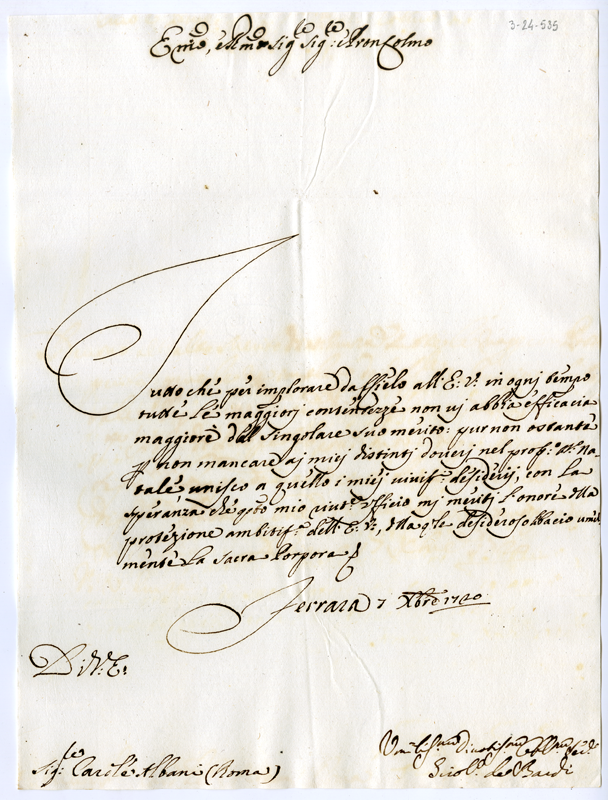 3-24-535
Em̃o, e Rm̃o Sig.re Sig.re e Pron Colmo
Tutto che per implorare dal Cielo all' E: V: in ogni tempo
tutte le maggiori contentezze non vi abbia efficacia
maggiore dal singolare suo merito: pur non ostante
p non mancare ai miei distinti doveri nel pross.o S. Na
tale unisco a quello i miei viviss.i desiderij, con la
speranza che q.to mio riv.te Officio mi meriti l'onore della
protezione ambitiss.a dell' E: V:, alla q.le desideroso bacio umil
mente la Sacra Porpora
Ferrara 7 Xbre 1720
Di V: E:
Sig.re Car.le Albani (Roma)
Um.o Divotis.mo Obb.mo Ser.
de Bardi